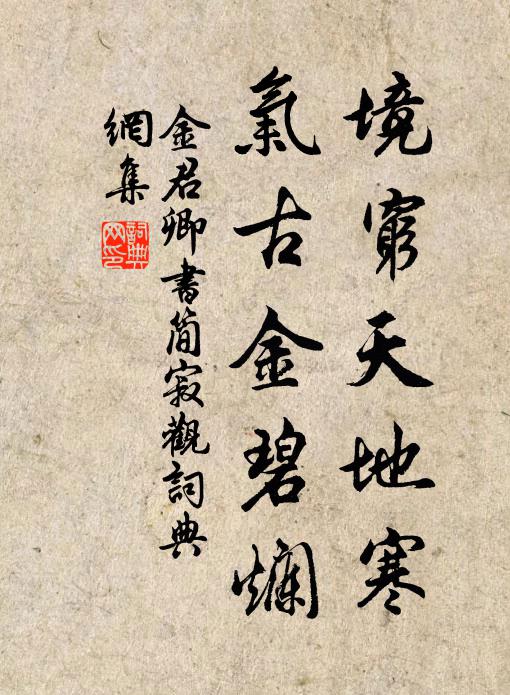 境窮天地寒
氣古金碧爛
金君卿書簡寂觀詞典
網集
詞典
网印